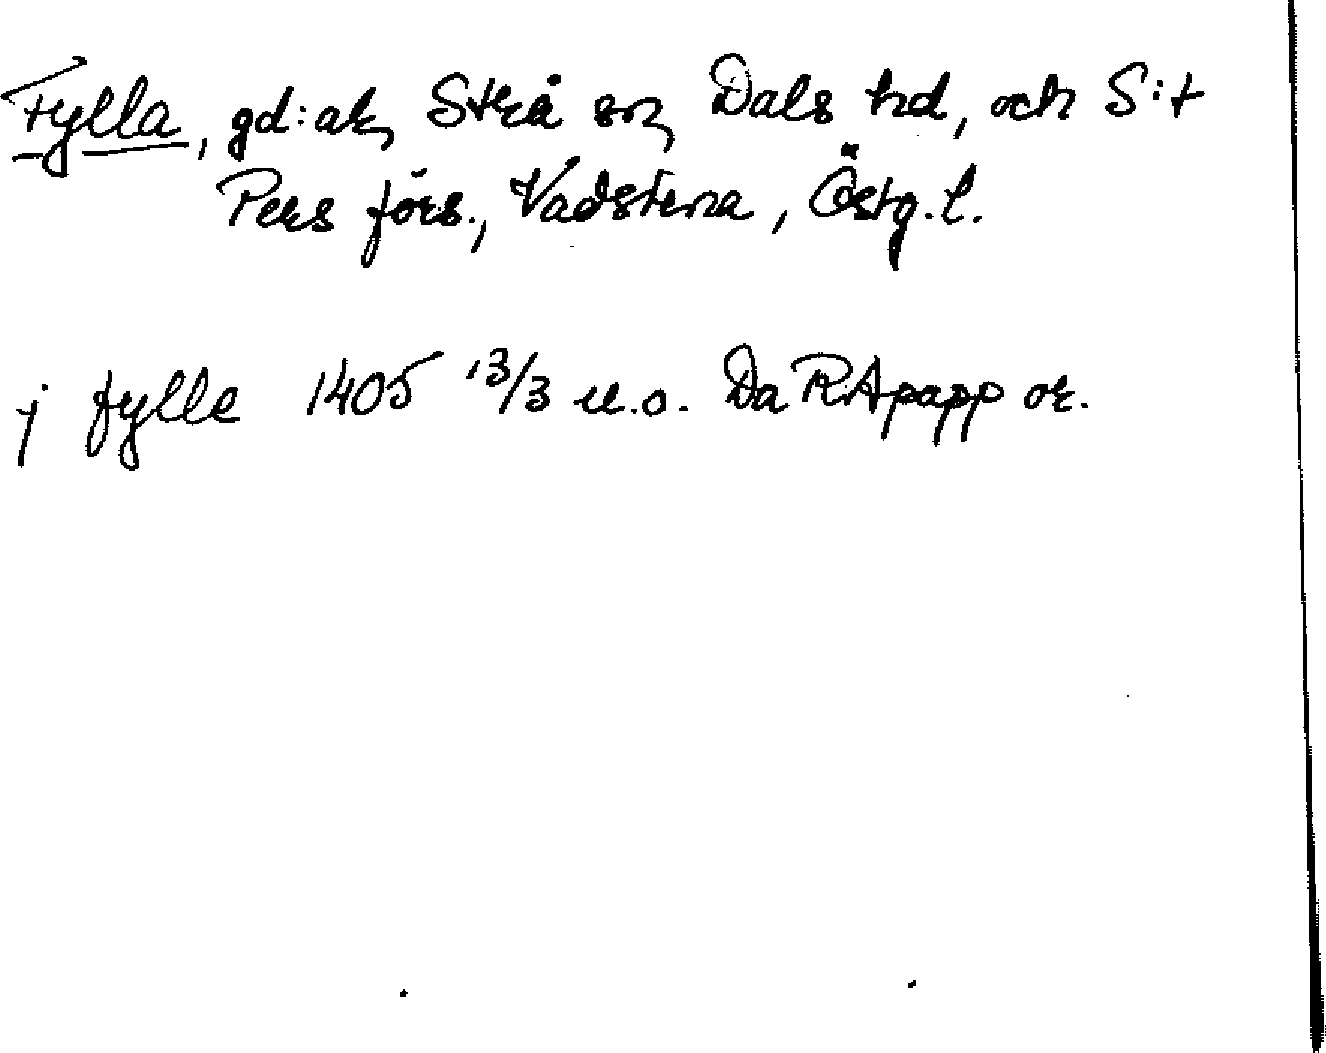 Fylla, gd:ar, Strå sn, Dals hd, och S:t
Pers förs., Vadstena, Östg. l.
j fylle 1405 13/3 u.o. Da RApapp or.